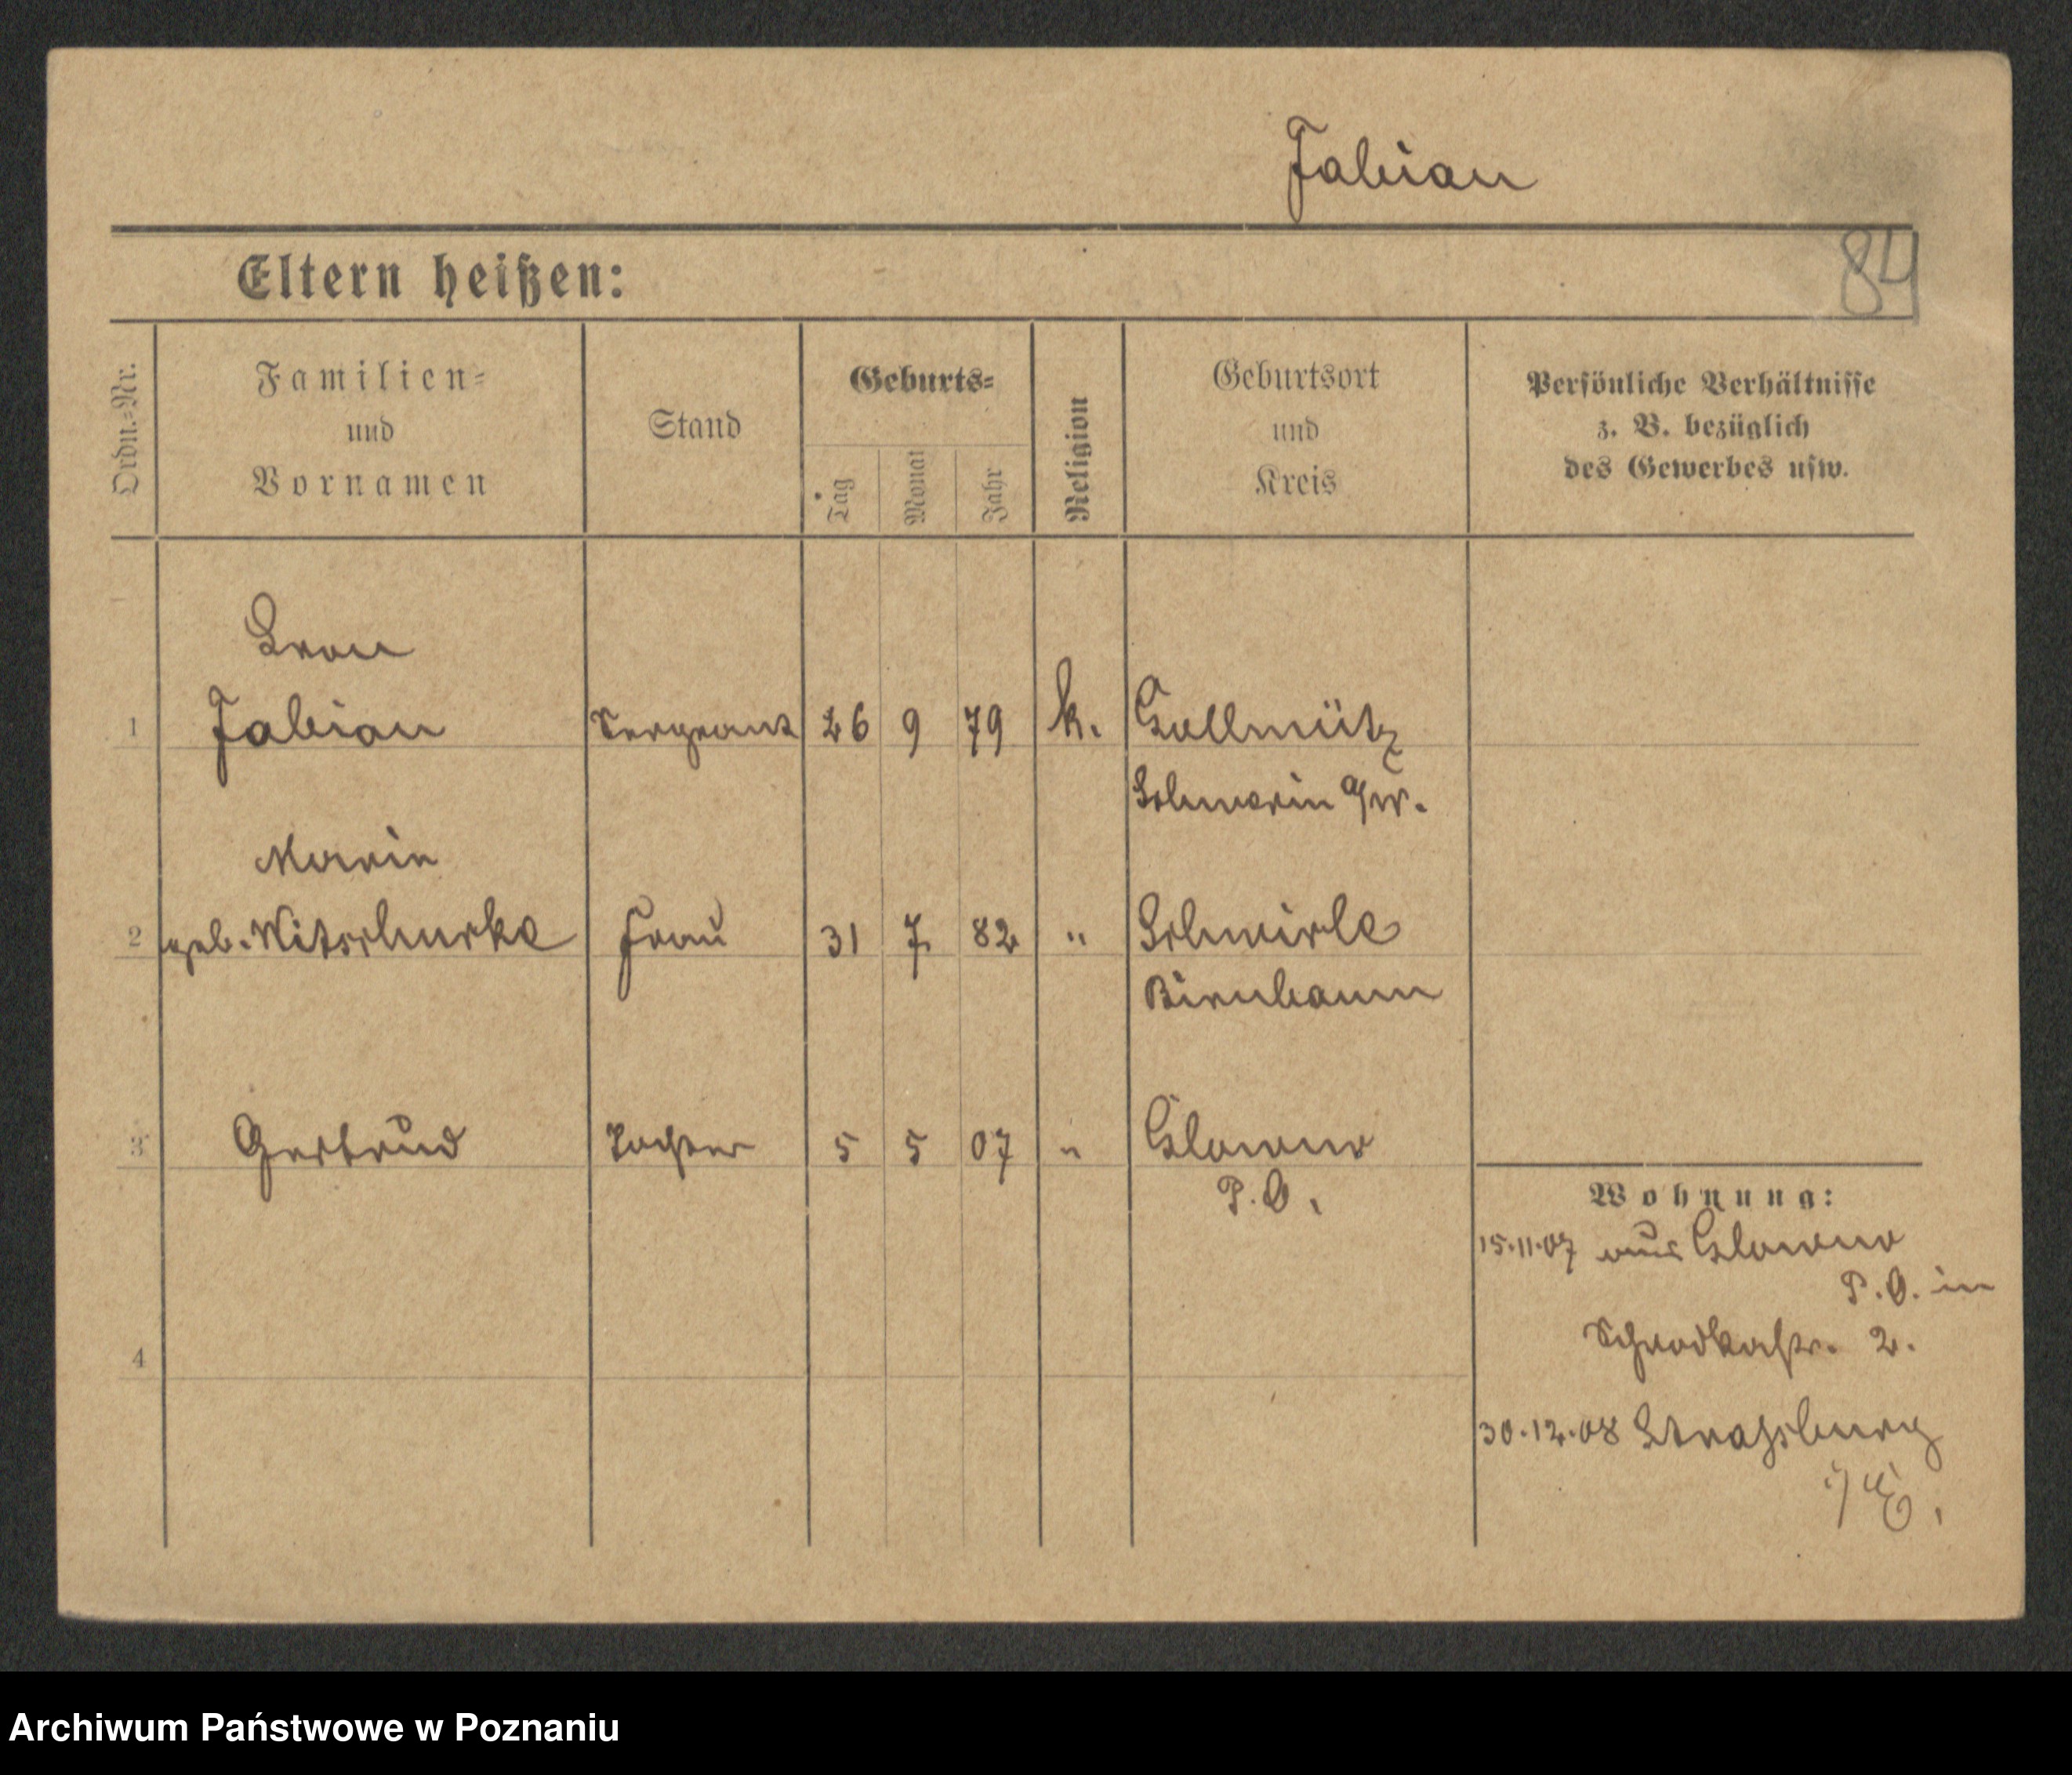 Fabian
84
Eltern heißen:
Ordn.-Nr.
Familien-
und
Vornamen
Stand
Geburts-
Tag
Monat
Jahr
Religion
Geburtsort
und
Kreis
Persönliche Verhältnisse
z. B. bezüglich
des Gewerbes usw.
Leon
1 Fabian Sergeant 26 9 79 k. Gollmütz
Schwerin a/W.
Marie
2 geb. Nitschurke Frau 31 7 82 " Schwirle
Birnbaum
3 Gertrud Tochter 5 5 07 " Glowno
P. O.
Wohnung:
15.11.07 aus Glowno
P. O. in
Schrodkastr. 2.
4
30.12.08 Strassburg
i/E.
Archiwum Państwowe w Poznaniu